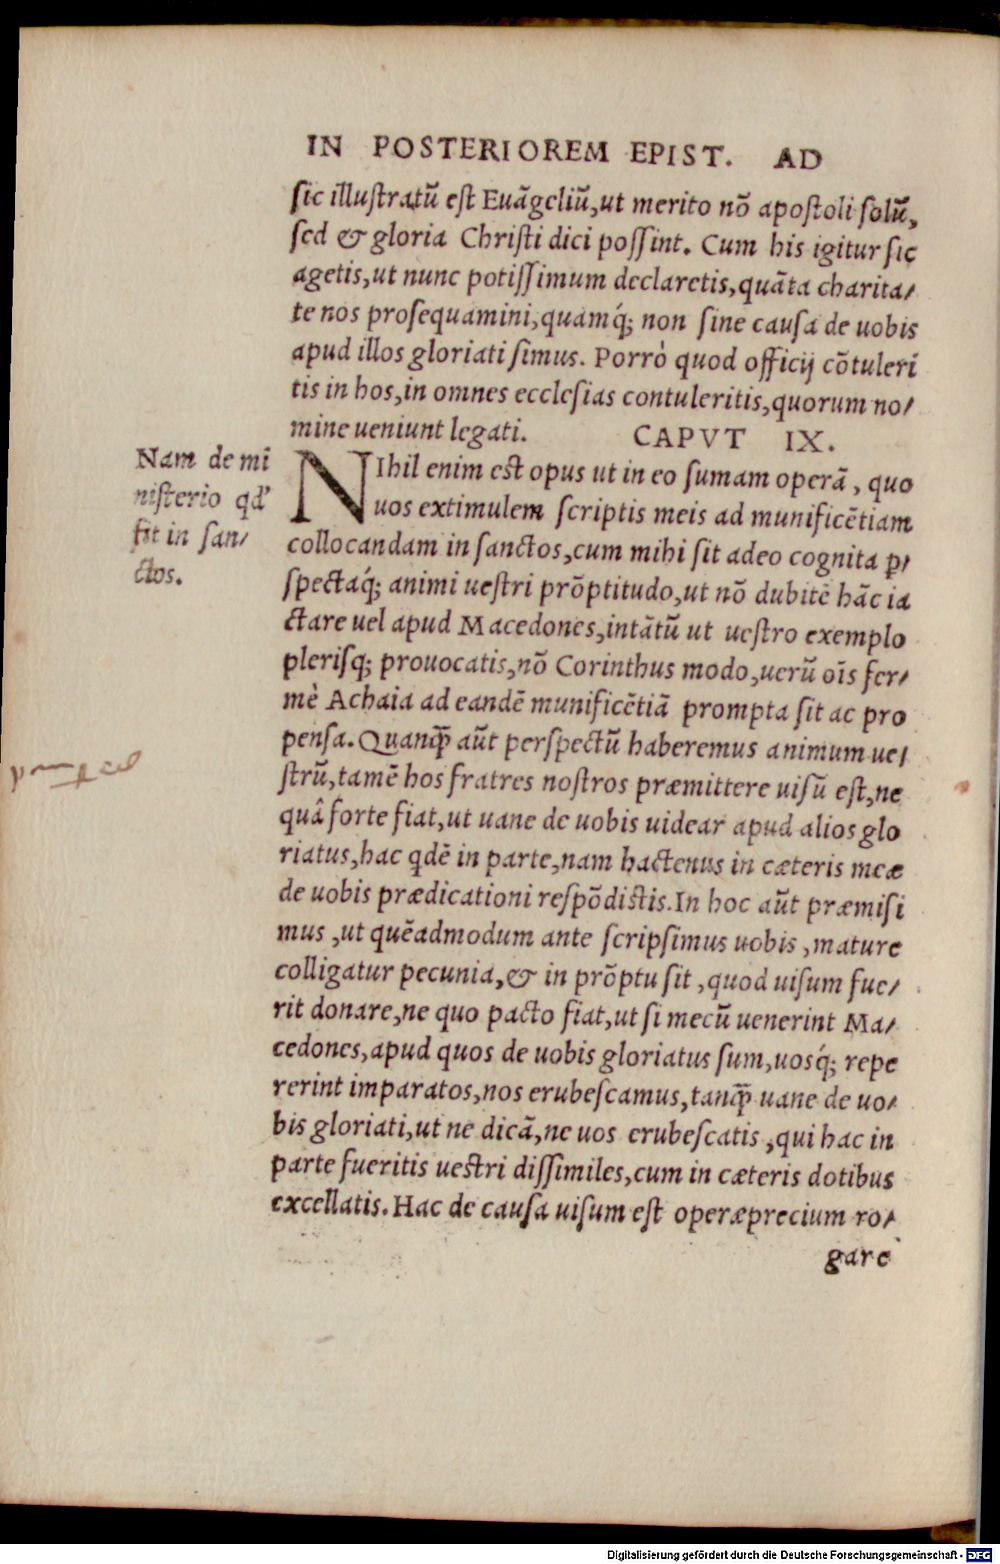 IN POSTERIOREM EPIST. AD
sic illustratū est Euāgeliū, ut merito nō apostoli solū,
sed & gloria Christi dici possint. Cum his igitur sic
agetis, ut nunc potissimum declaretis, quāta charita/
te nos prosequamini, quamq́; non sine causa de uobis
apud illos gloriati simus. Porrò quod officij cōtuleri
tis in hos, in omnes ecclesias contuleritis, quorum no/
mine ueniunt legati. CAPVT IX.
Nam de mi
nisterio qd'
fit in san/
ctos.
NIhil enim est opus ut in eo sumam operā, quo
uos extimulem scriptis meis ad munificētiam
collocandam in sanctos, cum mihi sit adeo cognita ꝑ/
spectaq́; animi uestri prōptitudo, ut nō dubitē hāc ia
ctare uel apud Macedones, intātū ut uestro exemplo
plerisq; prouocatis, nō Corinthus modo, uerū oīs fer/
mè Achaia ad eandē munificētiā prompta sit ac pro
pensa. Quanq̄ aūt perspectū haberemus animum ue/
strū, tamē hos fratres nostros præmittere uisū est, ne
quâ forte fiat, ut uane de uobis uidear apud alios glo
riatus, hac qdē in parte, nam hactenus in cæteris meæ
de uobis prædicationi respōdistis. In hoc aūt præmisi
mus, ut quēadmodum ante scripsimus uobis, mature
colligatur pecunia, & in prōptu sit, quod uisum fue/
rit donare, ne quo pacto fiat, ut si mecū uenerint Ma/
cedones, apud quos de uobis gloriatus sum, uosq́; repe
rerint imparatos, nos erubescamus, tanq̄ uane de uo/
bis gloriati, ut ne dicā, ne uos erubescatis, qui hac in
parte fueritis uestri dissimiles, cum in cæteris dotibus
excellatis. Hac de causa uisum est operæprecium ro/
gare
Digitalisierung gefördert durch die Deutsche Forschungsgemeinschaft - DFG